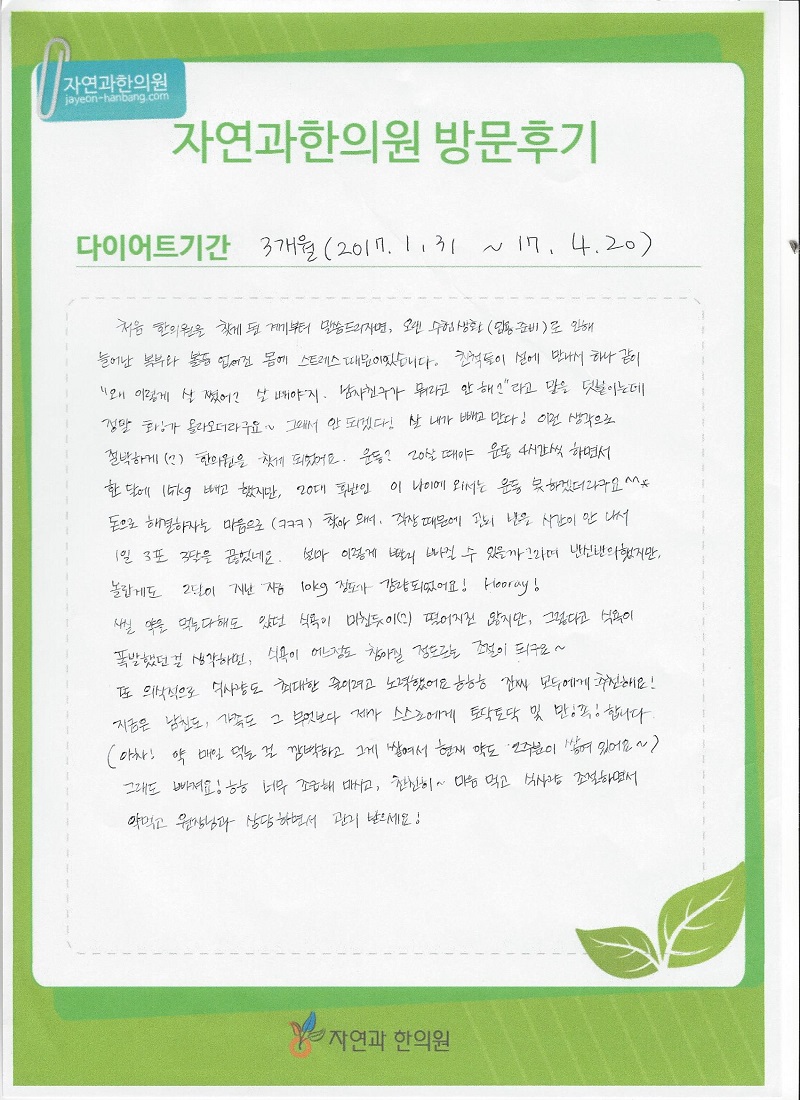 자연과한의원
jayeon-hanbang.com
자연과한의원 방문후기
다이어트기간 3개월(2017. 1. 31 ~ 17. 4. 20)
처음 한의원을 찾게 된 계기부터 말씀드리자면, 오랜 수험생활(임용준비)로 인해
늘어난 복부와 볼품 없어진 몸에 스트레스 때문이었습니다. 친척들이 설에 만나서 하나 같이
"왜 이렇게 살 쪘어? 살 빼야지. 남자친구가 뭐라고 안 해?"라고 말을 덧붙이는데
정말 화!가 올라오더라구요~ 그래서 안 되겠다! 살 내가 빼고 만다! 이런 생각으로
절박하게(?) 한의원을 찾게 되었어요. 운동? 20살 때야 운동 4시간씩 하면서
한 달에 15kg 빼고 했지만, 20대 후반인 이 나이에 와서는 운동 못 하겠더라구요^^*
돈으로 해결하자는 마음으로 (ㅋㅋㅋ) 찾아 와서, 직장 때문에 관리 받을 시간이 안 나서
1일 3포 3달을 끊었네요. 얼마 이렇게 빨리 빠질 수 있을까 그러며 반신반의했지만,
놀랍게도 2달이 지난 지금 10kg 정도가 감량되었어요! Hooray!
사실 약을 먹는다해도 있던 식욕이 미친듯이(?) 떨어지진 않지만, 그렇다고 식욕이
폭발했던 걸 생각하면, 식욕이 어느정도 참아질 정도로는 조절이 되구요~
또 의식적으로 식사량도 최대한 줄이려고 노력했어요 ㅎㅎㅎ 진짜 모두에게 추천해요!
지금은 남친도, 가족도 그 무엇보다 제가 스스로에게 토닥토닥 및 만!족! 합니다.
(아차! 약 매일 먹는 걸 깜박하고 그게 쌓여서 현재 약도 2주분이 쌓여 있어요~)
그래도 빠져요! ㅎㅎ 너무 조급해 마시고, 천천히~ 마음 먹고 식사량 조절하면서
약먹고 원장님과 상담하면서 관리 받으세요!
자연과 한의원